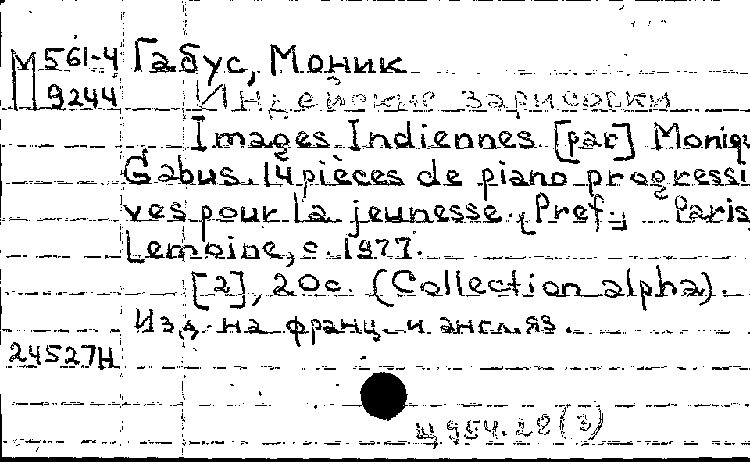 М 561-4 Габус, Моник
9244 Индейские зарисовки
Images Indiennes [par] Moniq
Gabus. 14 pièces de piano progressi
ves pour la jeunesse. [Pref.] Paris,
Lemoine, c. 1977.
[2], 20 с. (Collection alpha).
Изд. на франц. и англ. яз.
24527Н
Щ 954.28(3)